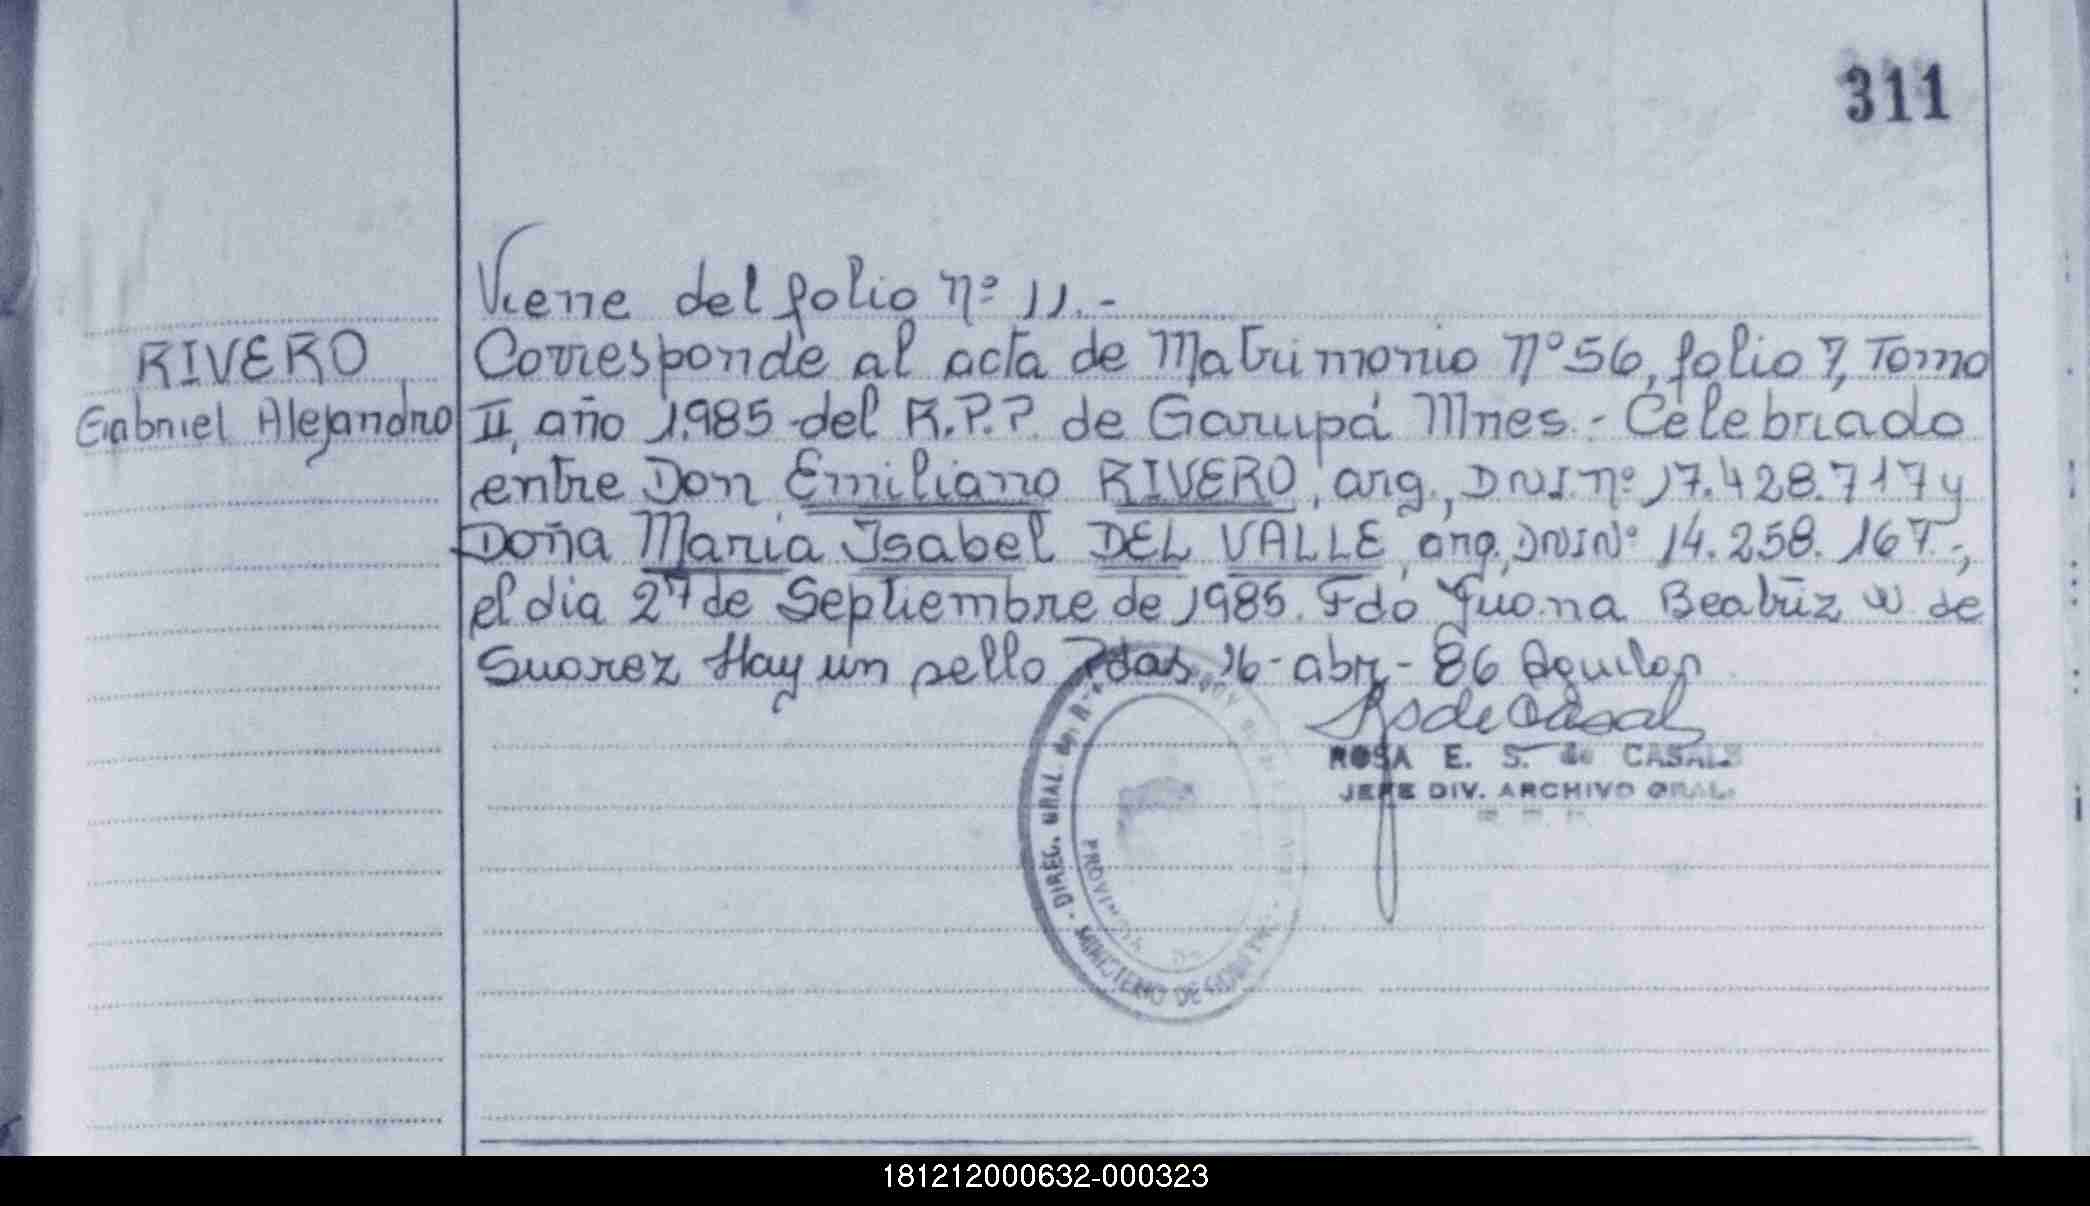 311
Viene del folio nº 11.-
RIVERO
Gabriel Alejandro
Corresponde al acta de Matrimonio Nº 56, folio 7, Tomo
II, año 1.985 del R.P.P. de Garupá Mnes.- Celebriado
entre Don Emiliano RIVERO, arg., DNI. nº 17.428.717 y
Doña Maria Isabel DEL VALLE, arg, DNI Nº 14.258.167.-,
el dia 27 de Septiembre de 1985. Fdo Juana Beatriz W de
Suarez Hay un sello Pdas, 16-abr-86 Aguilar
RS de Casal
ROSA E. S. de CASALS
JEFE DIV. ARCHIVO GRAL.
DIREC. GRAL. del R
MINISTERIO DE GOBIERNO
PROVINCIA DE
181212000632-000323